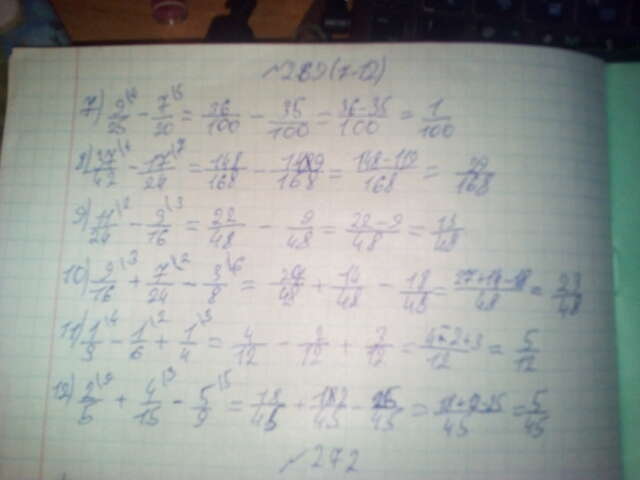 №289(7-12)
7) 9/25 \4 - 7/20 \5 = 36/100 - 35/100 = 36-35/100 = 1/100
8) 37/42 \4 - 17/24 \7 = 148/168 - 119/168 = 148-119/168 = 29/168
9) 11/24 \2 - 3/16 \3 = 22/48 - 9/48 = 22-9/48 = 13/48
10) 9/16 \3 + 7/24 \2 - 3/8 \6 = 27/48 + 14/48 - 18/48 = 27+14-18/48 = 23/48
11) 1/3 \4 - 1/6 \2 + 1/4 \3 = 4/12 - 2/12 + 3/12 = 4-2+3/12 = 5/12
12) 2/5 \9 + 4/15 \3 - 5/9 \5 = 18/45 + 12/45 - 25/45 = 18+12-25/45 = 5/45
№272